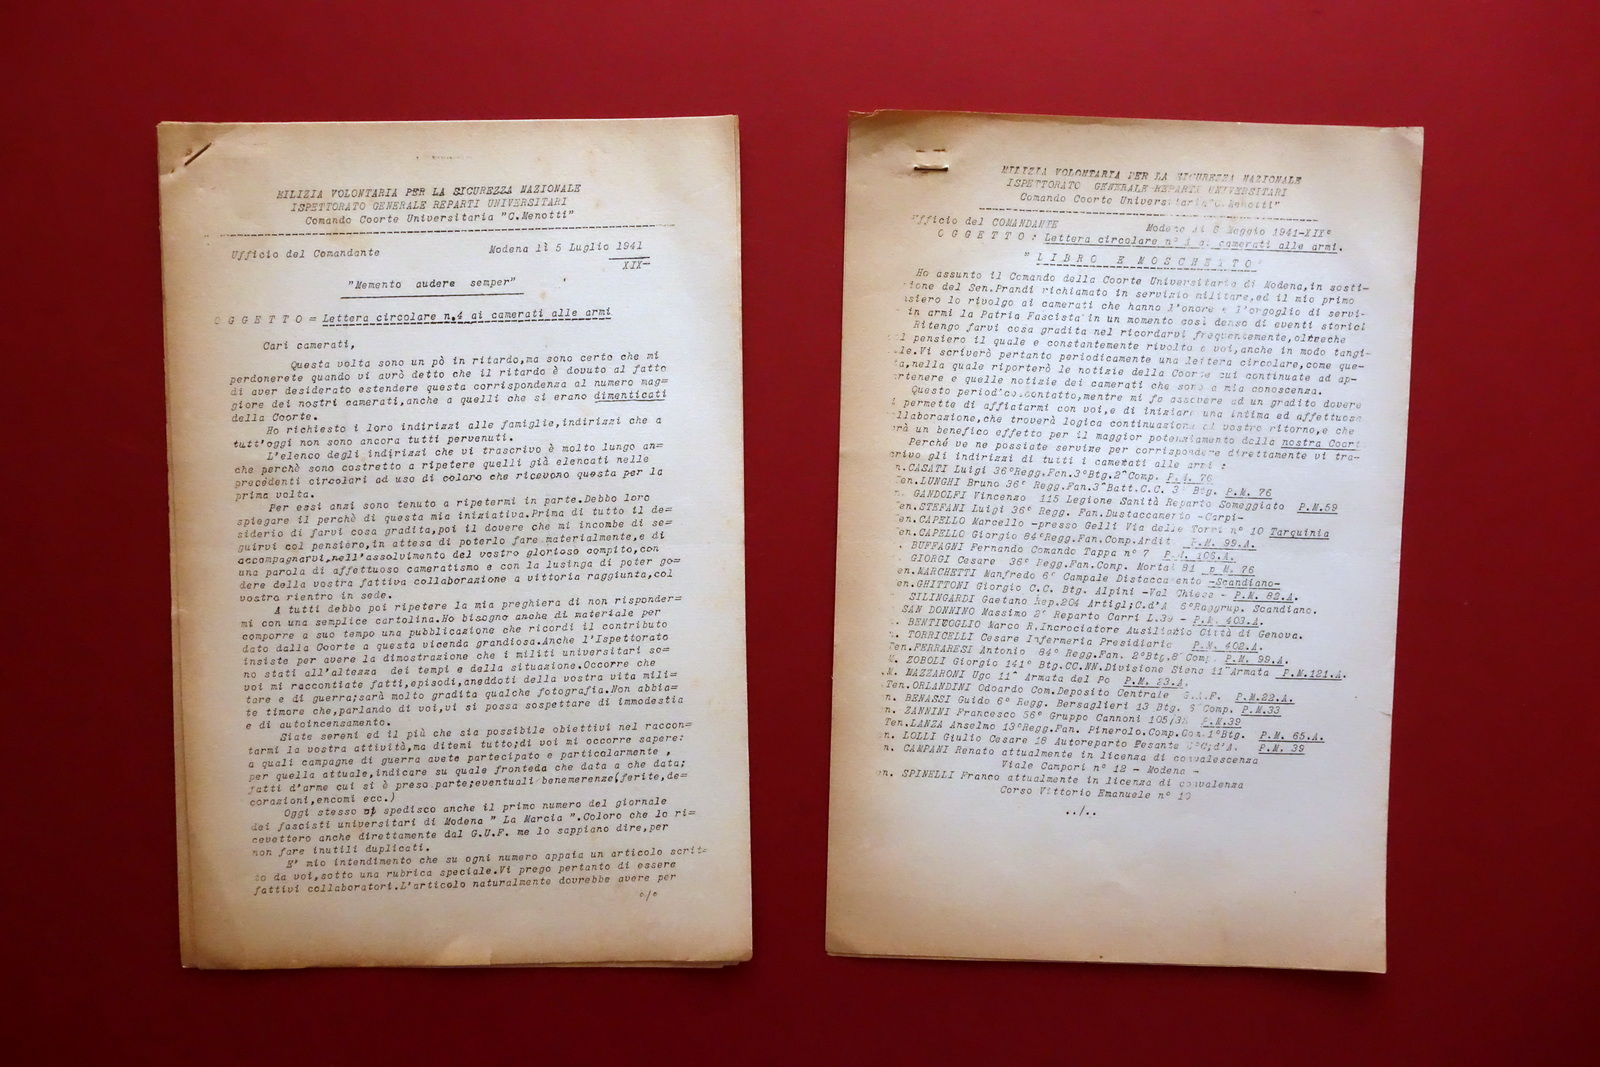 MILIZIA VOLONTARIA PER LA SICUREZZA NAZIONALE
ISPETTORATO GENERALE REPARTI UNIVERSITARI
Comando Coorte Universitaria "C.Menotti"
Ufficio del Comandante Modena lì 5 Luglio 1941
XIX=
"Memento audere semper"
O G G E T T O = Lettera circolare n.4 ai camerati alle armi
Cari camerati,
Questa volta sono un pò in ritardo,ma sono certo che mi
perdonerete quando vi avrò detto che il ritardo è dovuto al fatto
di aver desiderato estendere questa corrispondenza al numero mag=
giore dei nostri camerati,anche a quelli che si erano dimenticati
della Coorte.
Ho richiesto i loro indirizzi alle famiglie,indirizzi che a
tutt'oggi non sono ancora tutti pervenuti.
L'elenco degli indirizzi che vi trascrivo è molto lungo an=
che perchè sono costretto a ripetere quelli già elencati nelle
precedenti circolari ad uso di coloro che ricevono questa per la
prima volta.
Per essi anzi sono tenuto a ripetermi in parte.Debbo loro
spiegare il perchè di questa mia iniziativa.Prima di tutto il de=
siderio di farvi cosa gradita,poi il dovere che mi incombe di se=
guirvi col pensiero,in attesa di poterlo fare materialmente,e di
accompagnarvi,nell'assolvimento del vostro glorioso compito,con
una parola di affettuoso cameratismo e con la lusinga di poter go=
dere della vostra fattiva collaborazione a vittoria raggiunta,col
vostro rientro in sede.
A tutti debbo poi ripetere la mia preghiera di non risponder=
mi con una semplice cartolina.Ho bisogno anche di materiale per
comporre a suo tempo una pubblicazione che ricordi il contributo
dato dalla Coorte a questa vicenda grandiosa.Anche l'Ispettorato
insiste per avere la dimostrazione che i militi universitari so=
no stati all'altezza dei tempi e della situazione.Occorre che
voi mi raccontiate fatti,episodi,aneddoti della vostra vita mili=
tare e di guerra;sarà molto gradita qualche fotografia.Non abbia=
te timore che,parlando di voi,vi si possa sospettare di immodestia
e di autoincensamento.
Siate sereni ed il più che sia possibile obiettivi nel raccon=
tarmi la vostra attività,ma ditemi tutto;di voi mi occorre sapere:
a quali campagne di guerra avete partecipato e particolarmente ,
per quella attuale,indicare su quale fronteda che data a che data;
fatti d'arme cui si è preso parte;eventuali benemerenze(ferite,de=
corazioni,encomi ecc.)
Oggi stesso spedisco anche il primo numero del giornale
dei fascisti universitari di Modena " La Marcia ".Coloro che lo ri=
cevettero anche direttamente dal G.U.F. me lo sappiano dire,per
non fare inutili duplicati.
E' mio intendimento che su ogni numero appaia un articolo scrit=
to da voi,sotto una rubrica speciale.Vi prego pertanto di essere
fattivi collaboratori.L'articolo naturalmente dovrebbe avere per
o/o
MILIZIA VOLONTARIA PER LA SICUREZZA NAZIONALE
ISPETTORATO GENERALE REPARTI UNIVERSITARI
Comando Coorte Universitaria"C.Menotti"
Ufficio del COMANDANTE Modena lì 8 Maggio 1941-XIX°
O G G E T T O : Lettera circolare n° 1 ai camerati alle armi.
" L I B R O E MOSCHETTO "
Ho assunto il Comando della Coorte Universitaria di Modena,in sosti-
ione del Sen.Prandi richiamato in servizio militare,ed il mio primo
siero lo rivolgo ai camerati che hanno l'onore e l'orgoglio di servi-
in armi la Patria Fascista in un momento così denso di eventi storici
Ritengo farvi cosa gradita nel ricordarvi frequentemente,oltreche
l pensiero il quale e constantemente rivolto a voi,anche in modo tangi-
le.Vi scriverò pertanto periodicamente una lettera circolare,come que-
ta,nella quale riporterò le notizie della Coorte cui continuate ad ap-
rtenere e quelle notizie dei camerati che sono a mia conoscenza.
Questo periodico contatto,mentre mi fa assolvere ad un gradito dovere
i permette di affiatarmi con voi,e di iniziare una intima ed affettuosa
llaborazione,che troverà logica continuazione al vostro ritorno,e che
rà un benefico effetto per il maggior potenziamento della nostra Coort
Perchè ve ne possiate servire per corrispondere direttamente vi tra-
crivo gli indirizzi di tutti i camerati alle armi :
n.CASATI Luigi 36°Regg.Fan.3°Btg.2^Comp. P.M. 76
Ten.LUNGHI Bruno 36° Regg.Fan.3^Batt.C.C. 3° Btg. P.M. 76
GANDOLFI Vincenzo 115 Legione Sanità Reparto Someggiato P.M.59
en.STEFANI Luigi 36° Regg. Fan.Dustaccamento -Carpi-
en.CAPELLO Marcello -presso Gelli Via delle Torri n° 10 Tarquinia
en.CAPELLO Giorgio 84°Regg.Fan.Comp.Ardit P.M. 99.A.
. BUFFAGNI Fernando Comando Tappa n° 7 P.M. 106.A.
. GIORGI Cesare 36° Regg.Fan.Comp. Mortai 81 P.M. 76
en.MARCHETTI Manfredo 6° Campale Distaccamento -Scandiano-
en.GHITTONI Giorgio C.C. Btg. Alpini -Val Chiese - P.M. 82.A.
SILINGARDI Gaetano Rep.204 Artigl;C.d'A 6°Raggrup. Scandiano.
SAN DONNINO Massimo 2° Reparto Carri L.39 - P.M. 403.A.
. BENTIVOGLIO Marco R.Incrociatore Ausiliario Città di Genova.
. TORRICELLI Cesare Infermeria Presidiaria P.M. 402.A.
Ten.FERRARESI Antonio 84° Regg.Fan. 2°Btg.8° Comp. P.M. 99.A.
M. ZOBOLI Giorgio 141° Btg.CC.NN.Divisione Siena 11^Armata P.M.121.A.
.M. MAZZARONI Ugo 11^ Armata del Po P.M. 23.A.
Ten.ORLANDINI Odoardo Com.Deposito Centrale P.M.22.A.
n. BENASSI Guido 6° Regg. Bersaglieri 13 Btg. 6°Comp. P.M.33
n. ZANNINI Francesco 56° Gruppo Cannoni 105/32 P.M.39
Ten.LANZA Anselmo 13°Regg.Fan. Pinerolo.Comp.Com.1°Btg. P.M. 65.A.
n. LOLLI Giulio Cesare 18 Autoreparto Pesante C°C;d'A. P.M. 39
n. CAMPANI Renato attualmente in licenza di convalescenza
Viale Campori n° 12 - Modena -
n. SPINELLI Franco attualmente in licenza di convalenza
Corso Vittorio Emanuele n° 10
../..